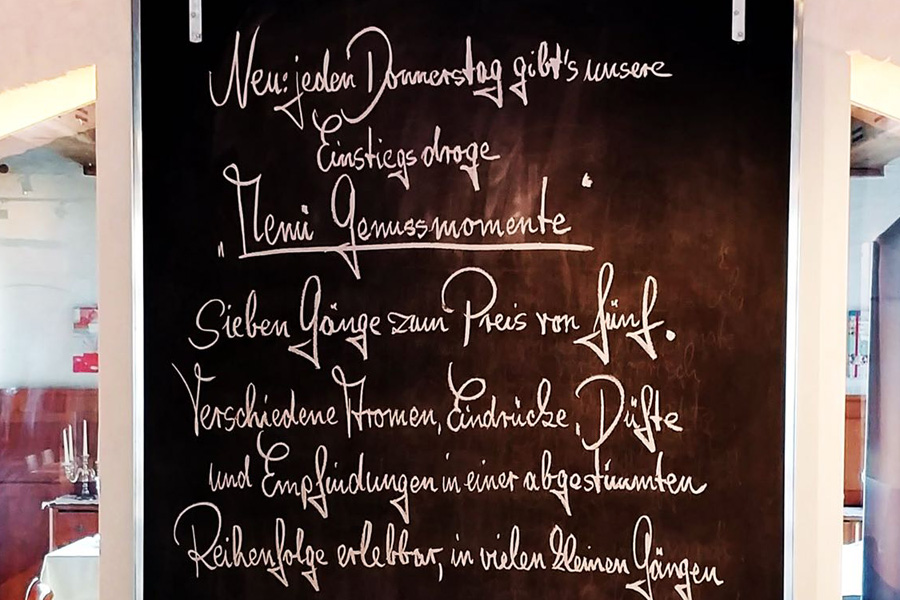 Neu: jeden Donnerstag gibt's unsere
Einstiegsdroge
„Menü Genussmomente"
Sieben Gänge zum Preis von fünf.
Verschiedene Aromen, Eindrücke, Düfte
und Empfindungen in einer abgestimmten
Reihenfolge erlebbar, in vielen kleinen Gängen